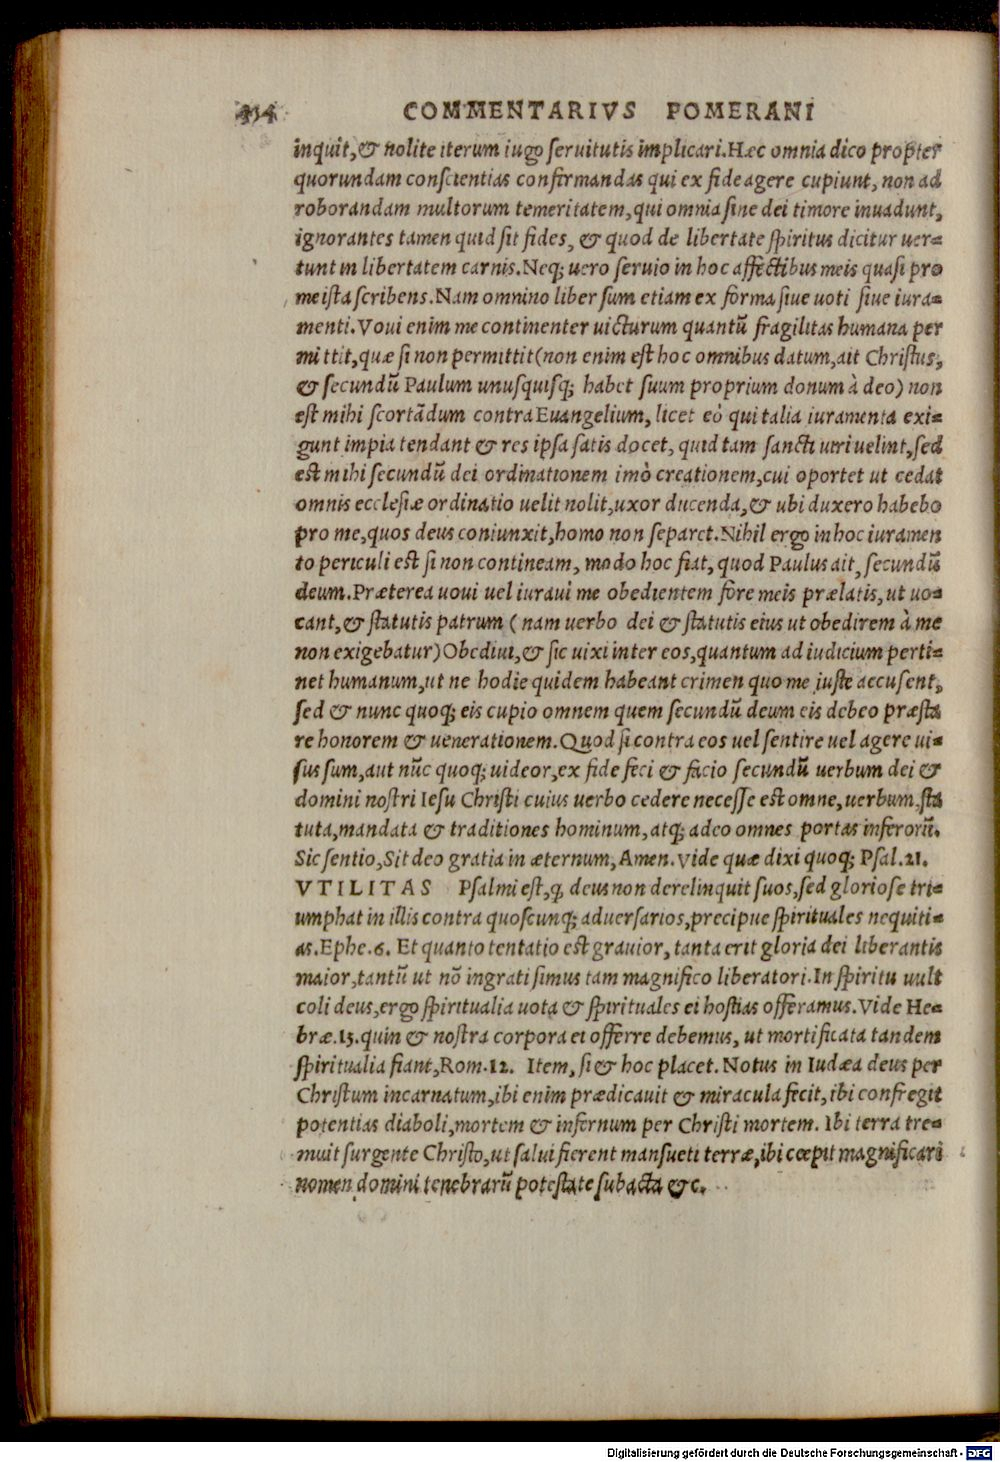 454 COMMENTARIVS POMERANI
inquit,& nolite iterum iugo seruitutis implicari.Hæc omnia dico propter
quorundam conscientias confirmandas qui ex fide agere cupiunt, non ad
roborandam multorum temeritatem,qui omnia sine dei timore inuadunt,
ignorantes tamen quid sit fides, & quod de libertate spiritus dicitur uer=
tunt in libertatem carnis.Neq; uero seruio in hoc affectibus meis quasi pro
me ista scribens.Nam omnino liber sum etiam ex forma siue uoti siue iura=
menti.Voui enim me continenter uicturum quantũ fragilitas humana per
mittit,quæ si non permittit(non enim est hoc omnibus datum,ait Christus,
& secundũ Paulum unusquisq; habet suum proprium donum à deo) non
est mihi scortãdum contra Euangelium, licet eò qui talia iuramenta exi=
gunt impia tendant & res ipsa satis docet, quid tam sancti uiri uelint,sed
est mihi secundũ dei ordinationem imò creationem,cui oportet ut cedat
omnis ecclesiæ ordinatio uelit nolit,uxor ducenda,& ubi duxero habebo
pro me,quos deus coniunxit,homo non separet.Nihil ergo in hoc iuramen
to periculi est si non contineam, modo hoc fiat, quod Paulus ait, secundũ
deum.Præterea uoui uel iuraui me obedientem fore meis prælatis,ut uo=
cant,& statutis patrum ( nam uerbo dei & statutis eius ut obedirem à me
non exigebatur)Obediui,& sic uixi inter eos,quantum ad iudicium perti=
net humanum,ut ne hodie quidem habeant crimen quo me iuste accusent,
sed & nunc quoq; eis cupio omnem quem secundũ deum eis debeo præsta
re honorem & uenerationem.Quod si contra eos uel sentire uel agere ui=
sus sum,aut nũc quoq; uideor,ex fide feci & facio secundũ uerbum dei &
domini nostri Iesu Christi cuius uerbo cedere necesse est omne,uerbum,sta
tuta,mandata & traditiones hominum,atq; adeo omnes portas inferorũ.
Sic sentio,Sit deo gratia in æternum,Amen.Vide quæ dixi quoq; Psal.21.
VTILITAS Psalmi est,q̃ deus non derelinquit suos,sed gloriose tri=
umphat in illis contra quoscunq; aduersarios,precipue spirituales nequiti=
as.Ephe.6. Et quanto tentatio est grauior, tanta erit gloria dei liberantis
maior,tantũ ut nõ ingrati simus tam magnifico liberatori.In spiritu uult
coli deus,ergo spiritualia uota & spirituales ei hostias offeramus.Vide He=
bræ.13.quin & nostra corpora ei offerre debemus, ut mortificata tandem
spiritualia fiant,Rom.12. Item, si & hoc placet. Notus in Iudæa deus per
Christum incarnatum,ibi enim prædicauit & miracula fecit, ibi confregit
potentias diaboli,mortem & infernum per Christi mortem. Ibi terra tre=
muit surgente Christo,ut salui fierent mansueti terræ,ibi cœpit magnificari
nomen domini tenebrarũ potestate subacta &c.
Digitalisierung gefördert durch die Deutsche Forschungsgemeinschaft - DFG